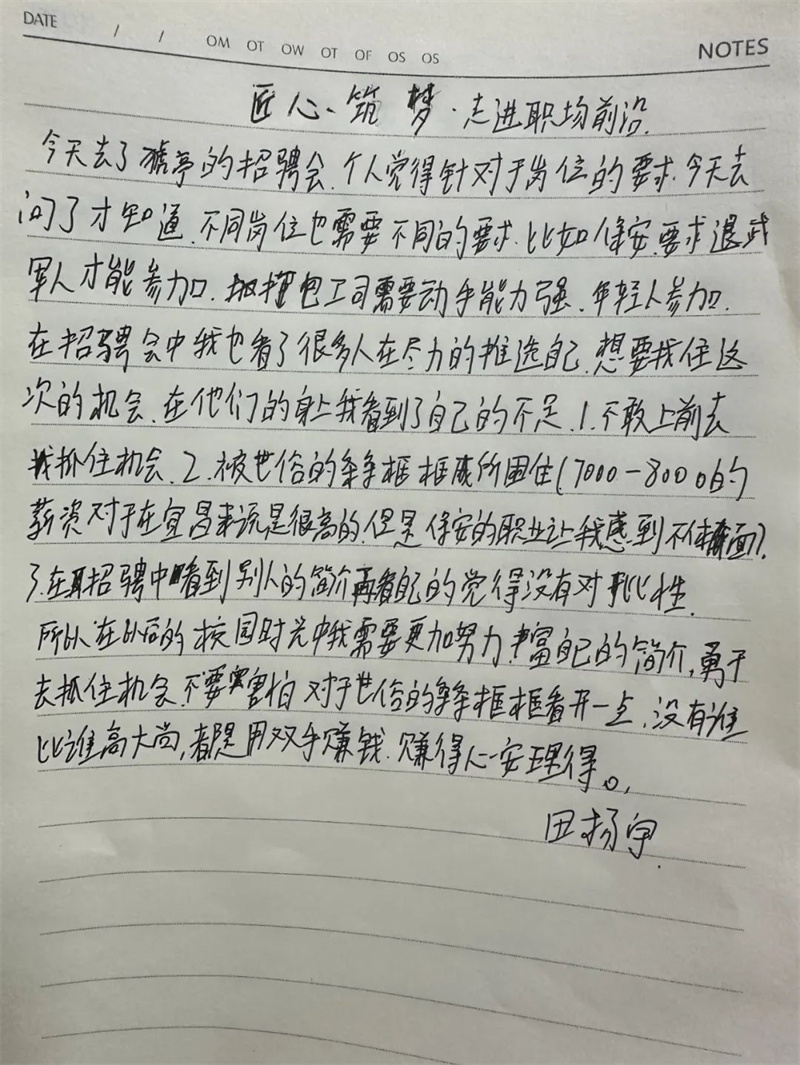 DATE / / OM OT OW OT OF OS OS NOTES
匠心、筑梦·走进职场前沿.
今天去了猇亭的招聘会.个人觉得针对于岗位的要求.今天去
问了才知道.不同岗位也需要不同的要求.比如保安.要求退武
军人才能参加.包工司需要动手能力强.年轻人参加.
在招聘会中我也看了很多人在尽力的推选自己.想要找住这
次的机会.在他们的身上我看到了自己的不足.1.不敢上前去
找抓住机会.2.被世俗的条框框所困住(7000-8000的
薪资对于在宜昌来说是很高的.但是保安的职业让我感到不体面).
3.在招聘中看到别人的简介再看自己的觉得没有对比性.
所以在以后的校园时光中我需要更加努力.丰富自己的简介,勇于
去抓住机会.不要害怕.对于世俗的条框框看开一点.没有谁
比谁高大尚,都是用双手赚钱.赚得心安理得。.
田扬宇.